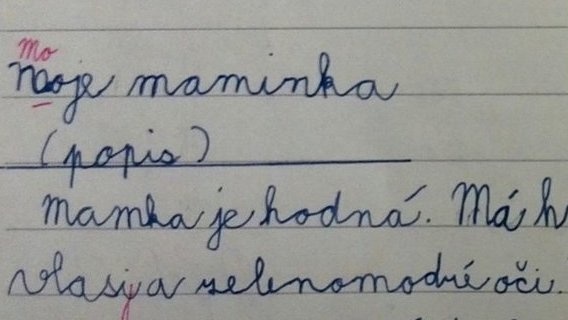 Mo
Naoje maminka
(popis)
Mamka je hodná. Má h
vlasy a zelenomodré oči.